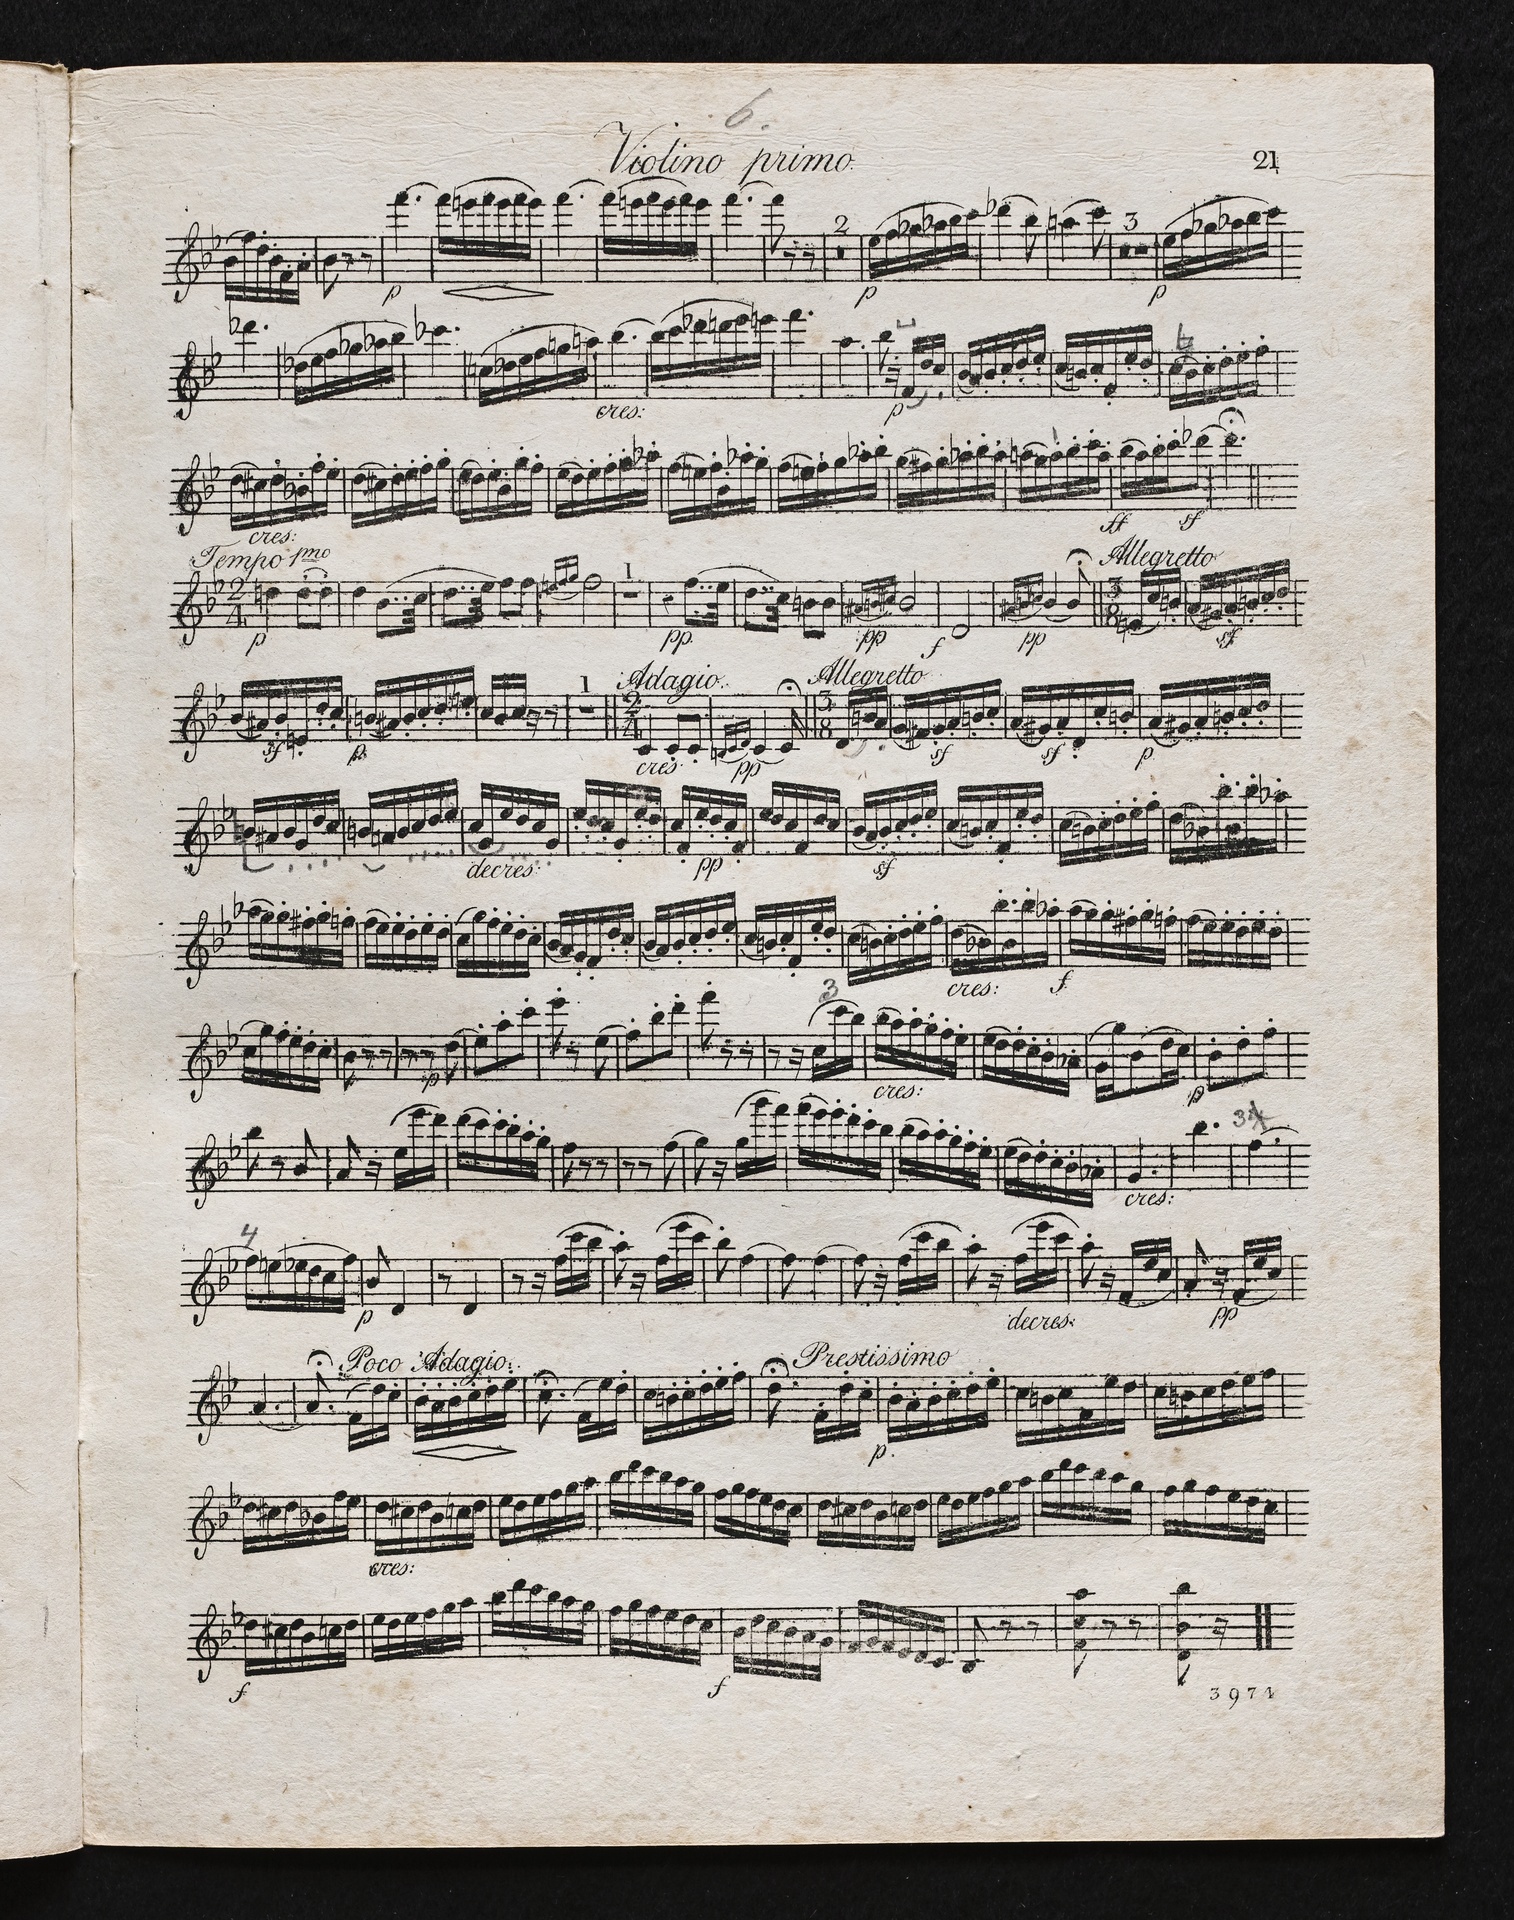 6.
Violino primo.
21
2 3
p p p
cres: p
cres: ff sf
Tempo 1mo Allegretto
2 4 1 3 8
p pp pp f pp sf
Adagio. Allegretto
1 2 4 3 8
sf p cres: pp sf sf p
decres: pp sf
cres: f
3
p cres: p
3
cres:
4
p decres: pp
Poco Adagio. Prestissimo
p.
cres:
f f
3974